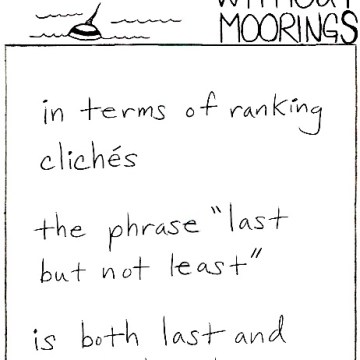 WITHOUT
MOORINGS
in terms of ranking
clichés
the phrase "last
but not least"
is both last and